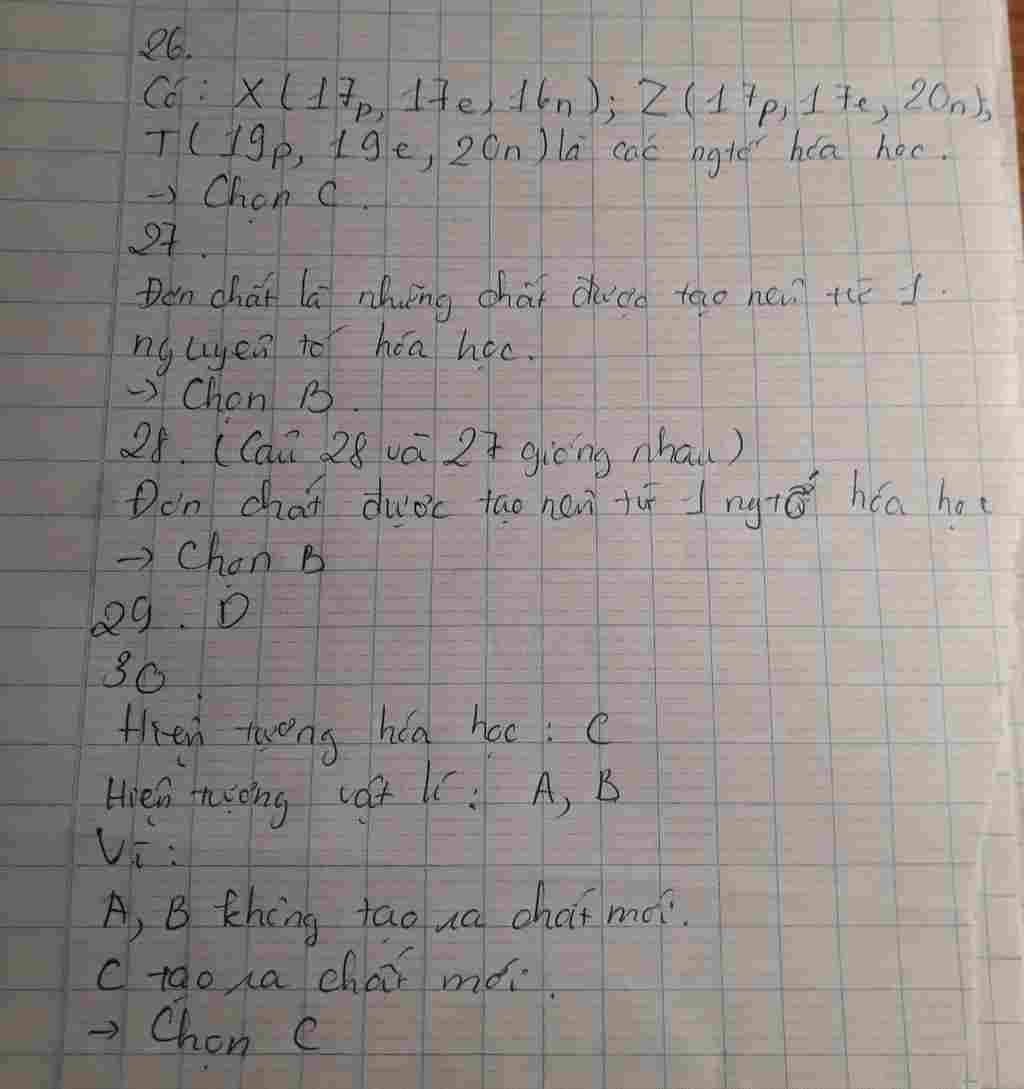 26.
Có : X (17p, 17e, 16n); Z (17p, 17e, 20n),
T (19p, 19e, 20n) là các ngtố hóa học.
→ Chọn C.
27.
Đơn chất là những chất được tạo nên từ 1
nguyên tố hóa học.
→ Chọn B.
28. (Câu 28 và 27 giống nhau)
Đơn chất được tạo nên từ 1 ngtố hóa học
→ Chọn B
29. D
30.
Hiện tượng hóa học : C
Hiện tượng vật lí : A, B
Vì :
A, B không tạo ra chất mới.
C tạo ra chất mới.
→ Chọn C